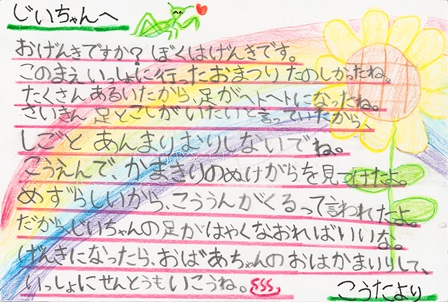 じいちゃんへ
おげんきですか？ぼくはげんきです。
このまえいっしょに行ったおまつりたのしかったね。
たくさんあるいたから、足がヘトヘトになったね。
さいきん足とこしがいたいと言っていたから、
しごとあんまりむりしないでね。
こうえんで、かまきりのぬけがらを見つけたよ。
めずらしいから、こううんがくるって言われたよ。
だからじいちゃんの足がはやくなおればいいな。
げんきになったら、おばあちゃんのおはかまいりして、
いっしょにせんとうもいこうね。
こうたより